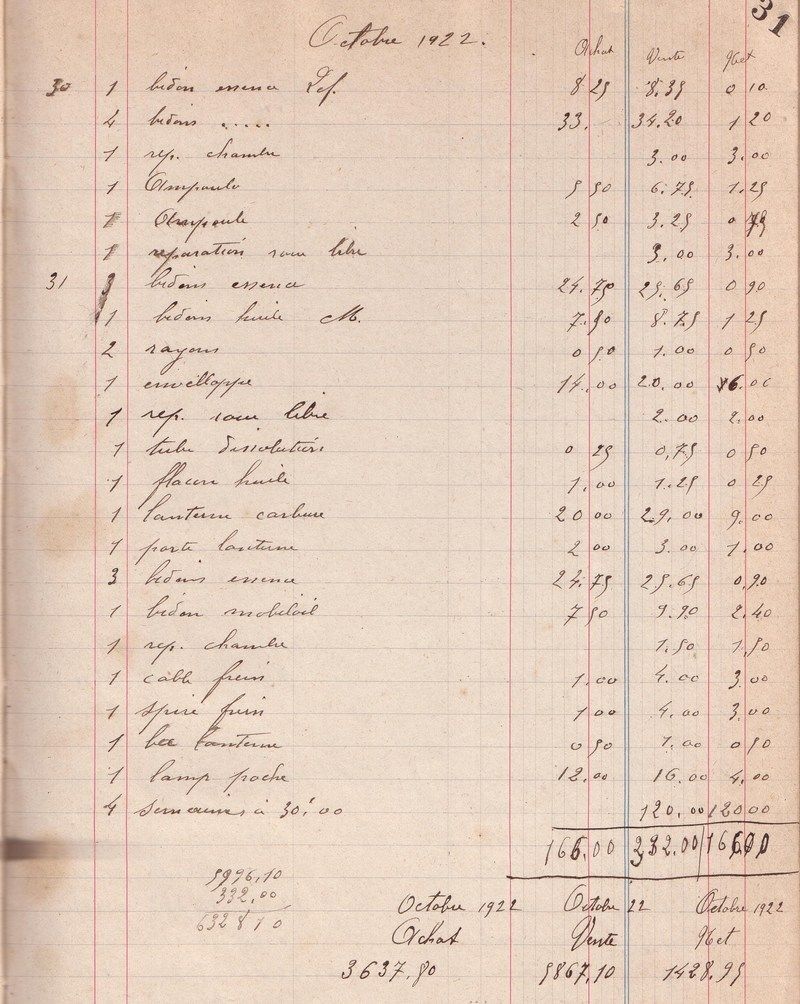 31
Octobre 1922.
Achat Vente Net
30 1 bidon essence 8 25 8.35 0 10
4 bidons ..... 33. 34.20 1 20
1 rep. chambre 3.00 3.00
1 Ampoule 5 50 6.75 1.25
1 Ampoule 2 50 3.25 0 75
1 reparation roue libre 3.00 3.00
31 bidons essence 24.75 25.65 0 90
1 bidons huile M. 7.50 8.75 1 25
2 rayons 0 50 1.00 0 50
1 envelloppe 14.00 20.00 6.00
1 rep. roue libre 2.00 2.00
1 tube dissolution 0 25 0,75 0 50
1 flacon huile 1.00 1.25 0 25
1 lanterne carbure 20 00 29.00 9.00
1 porte lanterne 2 00 3.00 1.00
3 bidons essence 24.75 25.65 0,90
1 bidon mobiloil 7 50 9.90 2.40
1 rep. chambre 1.50 1,50
1 cable frein 1.00 4.00 3.00
1 spire frein 1 00 4.00 3.00
1 bec lanterne 0 50 1.00 0 50
1 lamp poche 12.00 16.00 4.00
4 semaines à 30'00 120.00 120 00
166.00 332.00 166.00
5996,10
332,00
6328 10
Octobre 1922 Octobre 22 Octobre 1922
Achat Vente Net
3637.80 5867,10 1428.95